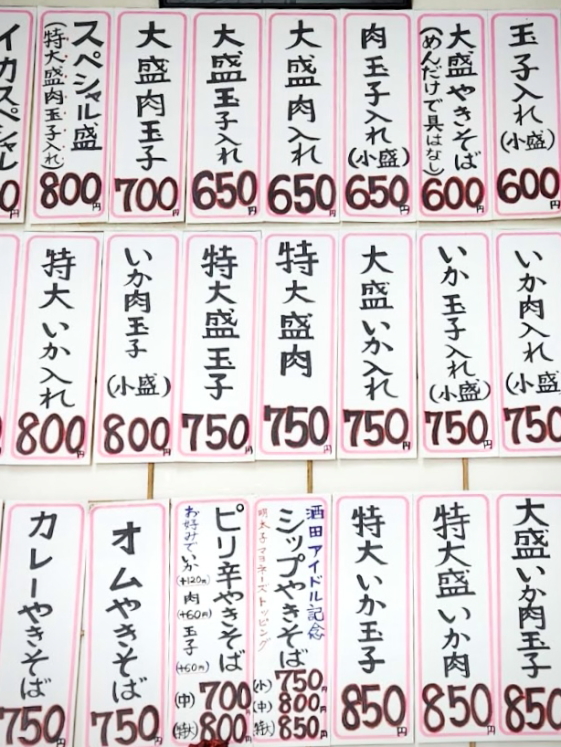 玉子入れ
(小盛)
600円
大盛やきそば
(めんだけで具はなし)
600円
肉玉子入れ
(小盛)
650円
大盛肉入れ
650円
大盛玉子入れ
650円
大盛肉玉子
700円
スペシャル盛
(特大盛肉玉子入れ)
800円
イカスペシャル
0円
いか肉入れ
(小盛)
750円
いか玉子入れ
(小盛)
750円
大盛いか入れ
750円
特大盛肉
750円
特大盛玉子
750円
いか肉玉子
(小盛)
800円
特大いか入れ
800円
大盛いか肉玉子
850円
特大盛いか肉
850円
特大いか玉子
850円
酒田アイドル記念
シップやきそば
明太子マヨネーズトッピング
(小) 750円
(中) 800円
(特大) 850円
ピリ辛やきそば
お好みでいか(+120円) 肉(+60円) 玉子(+50円)
(中) 700円
(特大) 800円
オムやきそば
750円
カレーやきそば
750円